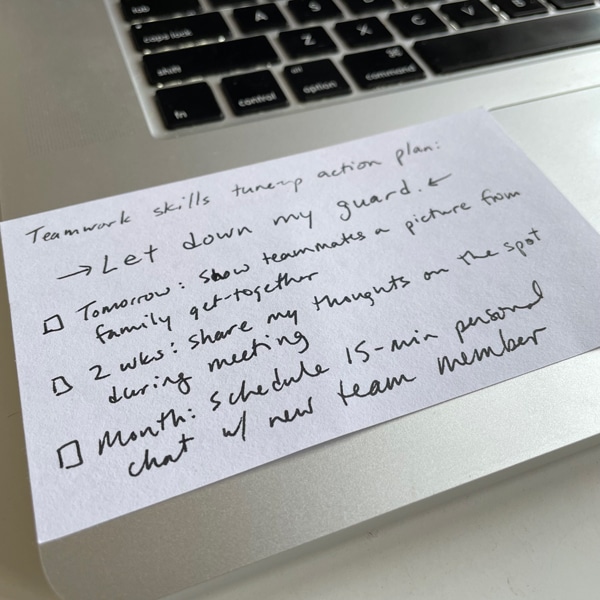 tab
A S D F G
caps lock
Z X C V B
shift
fn control alt option ⌘ command
Teamwork skills tune-up action plan:
→ Let down my guard. ←
☐ Tomorrow: show teammates a picture from
family get-together
☐ 2 wks: share my thoughts on the spot
during meeting
☐ Month: schedule 15-min personal
chat w/ new team member